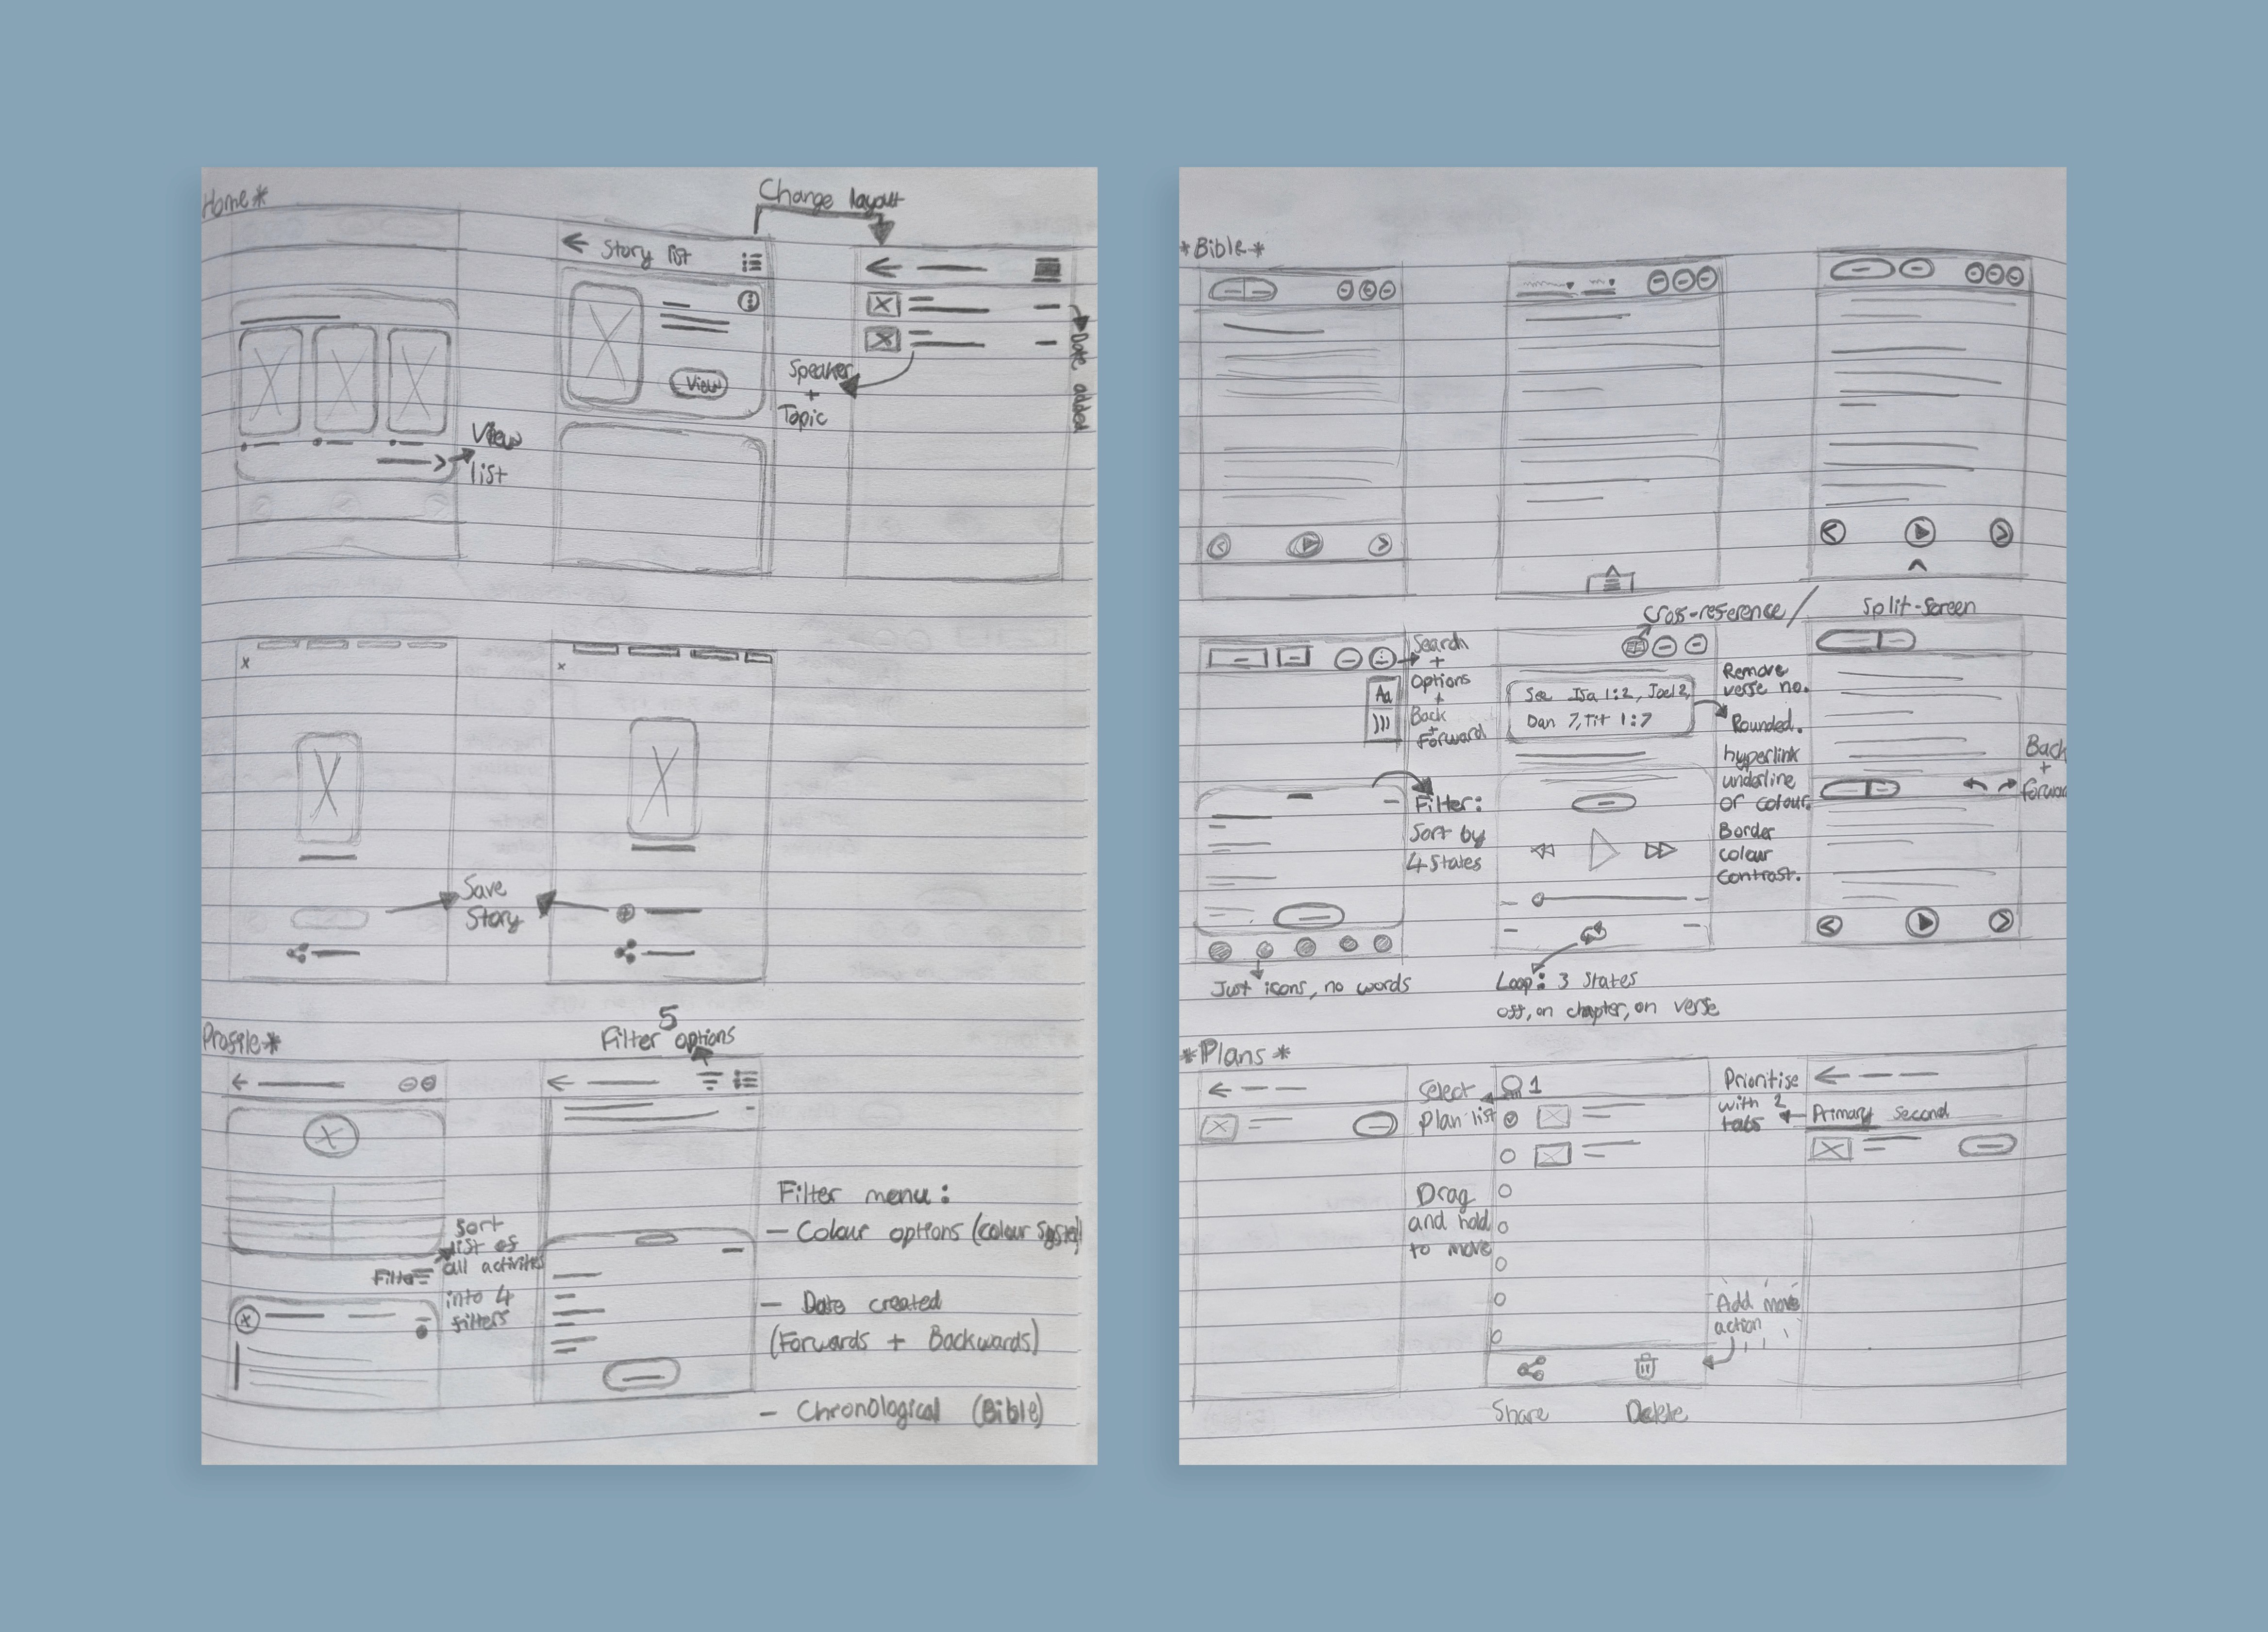 Home*
Change layout
Story list
View
View
list
Speaker
+
Topic
Date added
Save
Story
Profile*
5
Filter options
Sort
list of
all activities
Filter
into 4
filters
Filter menu:
- Colour options (colour system)
- Date created
(Forwards + Backwards)
- Chronological (Bible)
*Bible*
Cross-reference / Split-screen
Search
+
Options
+
Back
+
Forward
Aa
See Isa 1:2, Joel 2,
Dan 7, Tit 1:7
Remove
verse no.
Rounded.
hyperlink
underline
or colour.
Border
colour
contrast.
Back
+
forward
Filter:
Sort by
4 States
Just icons, no words
Loop: 3 States
off, on chapter, on verse
*Plans*
Select
Plan list
1
Drag
and hold
to move
Prioritise
with 2
tabs
Primary Second
Add move
action
Share Delete